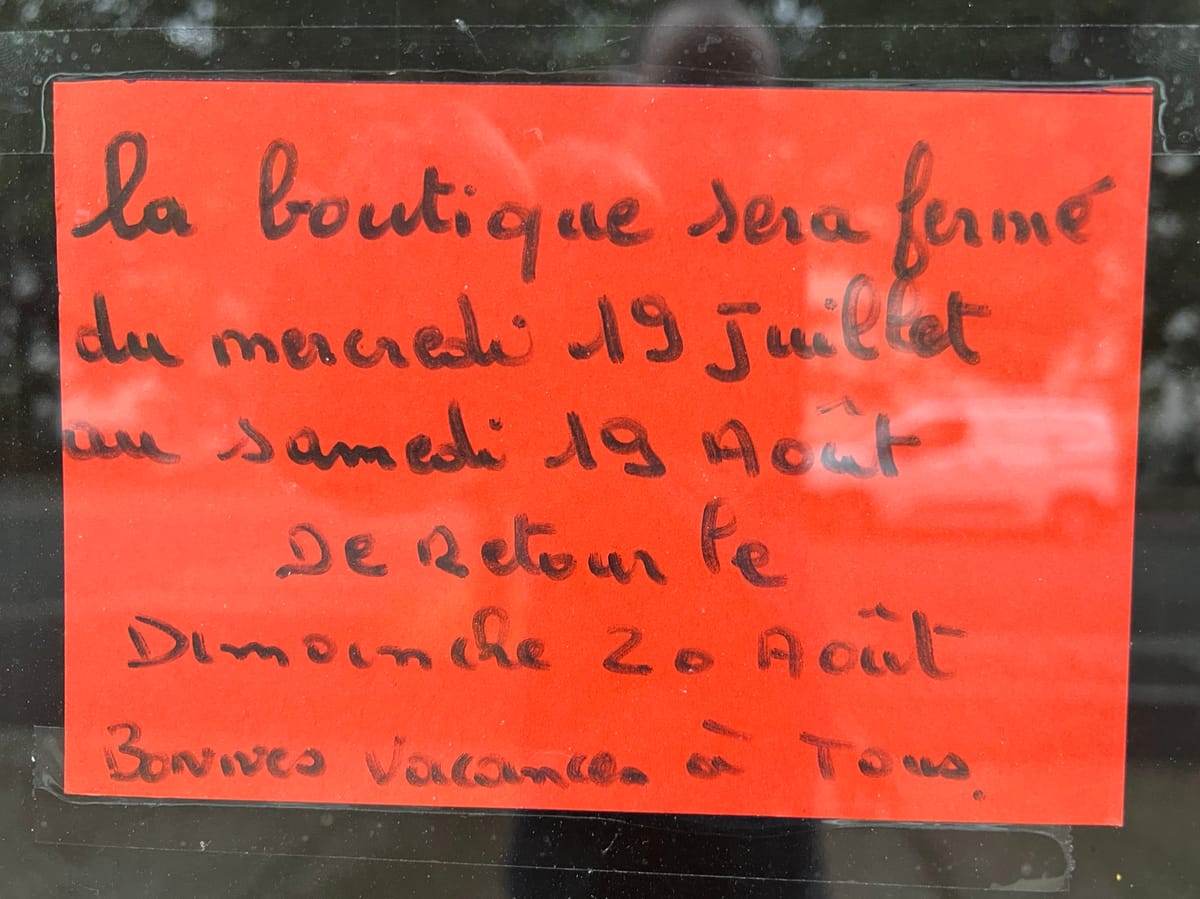 la boutique sera fermé
du mercredi 19 Juillet
au samedi 19 Août
De Retour le
Dimanche 20 Août
Bonnes Vacances à Tous.